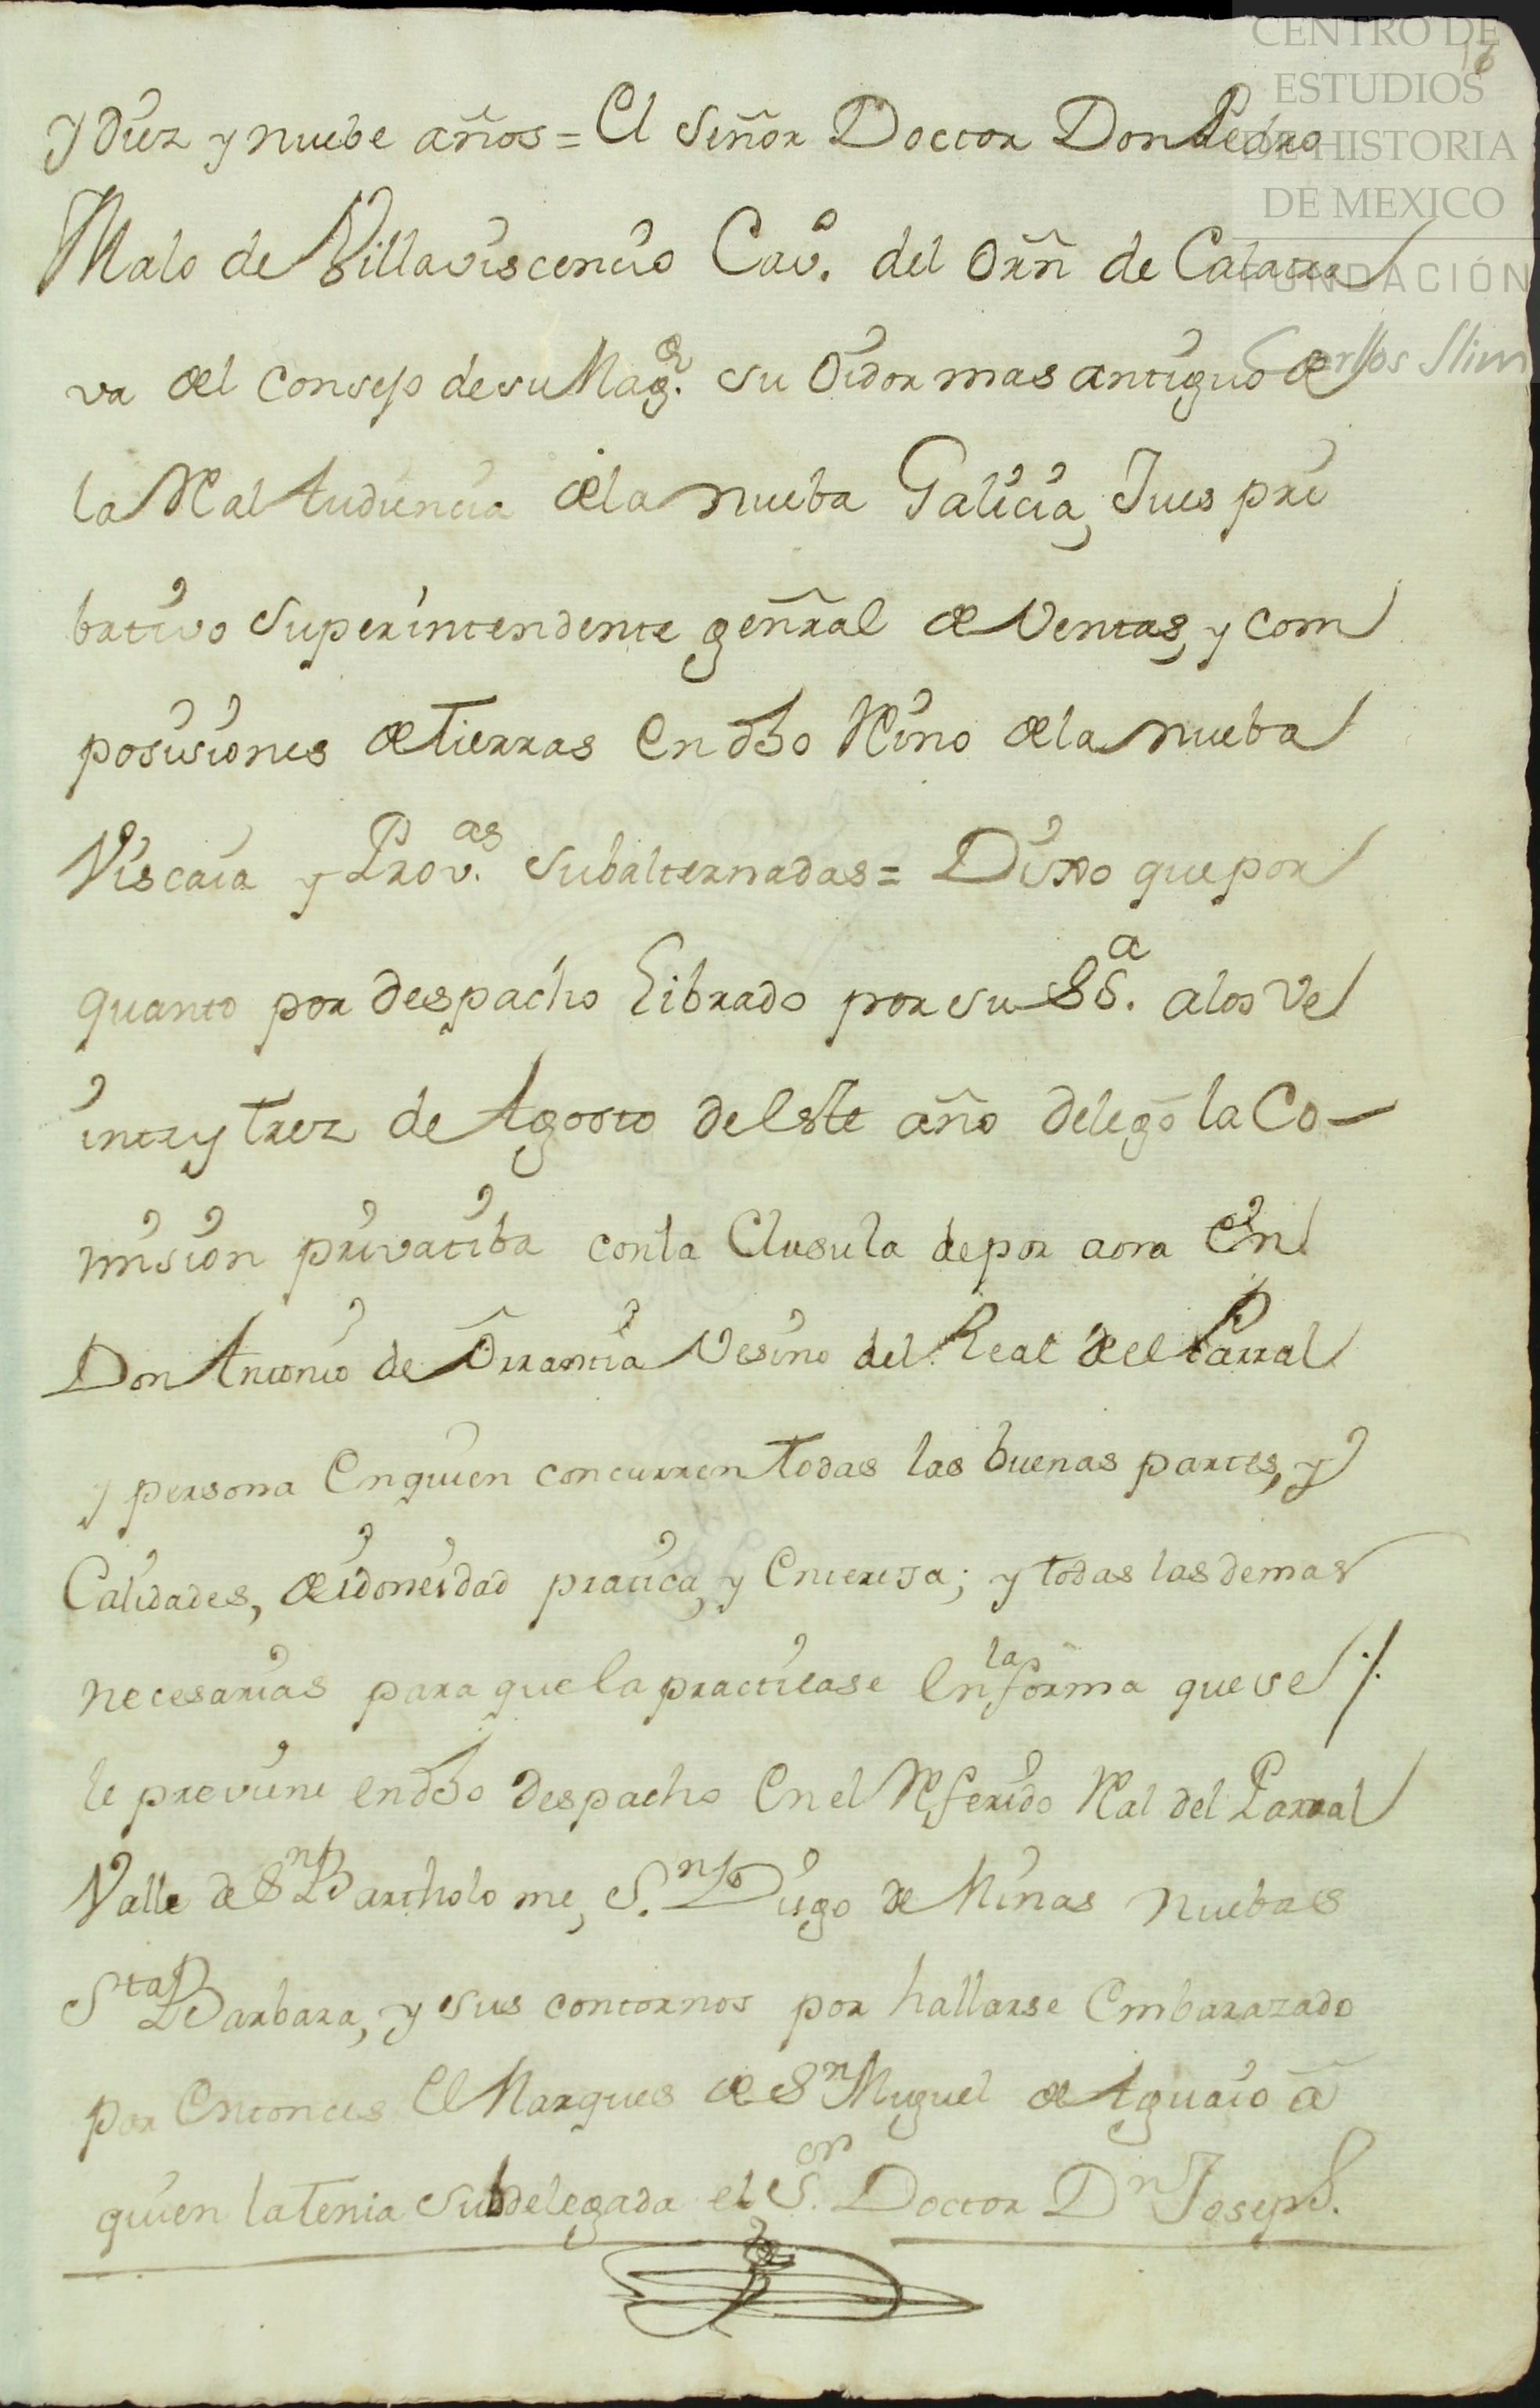 CENTRO DE
ESTUDIOS
DE HISTORIA
DE MEXICO
FUNDACIÓN
Carlos Slim
16
y diez y nuebe años = El Señor Doctor Don Pedro
Malo de Villaviscencio Cavº. del Orñ de Calatra
va del Consejo de su Magd. su Oidor mas antiguo de
la Real Audiencia de la nueba Galicia, Jues pri
bativo Superintendente geñral de Ventas, y com
posisiones de Tierras en dho Reino de la nueba
Viscaia y Provas. subalternadas = Dixo que por
quanto por despacho Librado por su Ssa. a los Ve
inte y trez de Agosto del Este año delegó la Co-
mision privatiba con la Clusula de por aora En
Don Antonio de Orrantia Vesino del Real del Parral
y persona En quien concurren todas las buenas partes, y
Calidades, de idoneidad pratica, y Entereza; y todas las demas
necesarias para que la practicase En la forma que se /.
le previene en dho Despacho En el Referido Real del Parral
Valle de Sn Bartholome, S.n Diego de Minas nuebas
Sta Barbara, y sus contornos por hallarse Embarazado
por Entonces El Marques de Sn Miguel de Aguaio a
quien la tenia Subdelegada el S.or Doctor Dn Joseph.